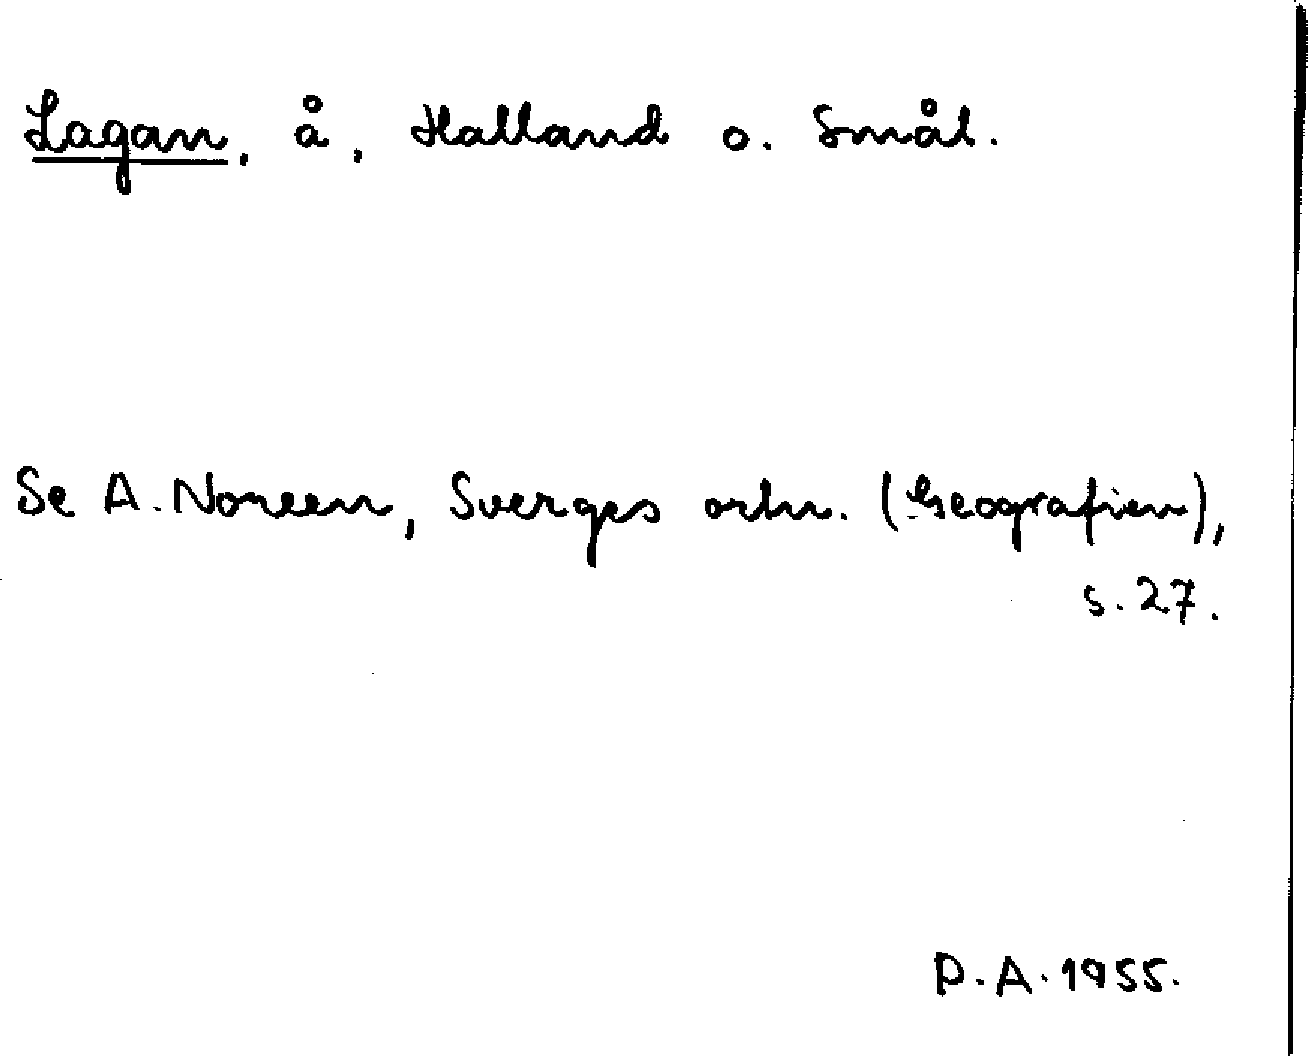 Lagan, å, Halland o. Smål.
Se A. Noreen, Sverges ortn. (Geografien),
s. 27.
P.A. 1955.